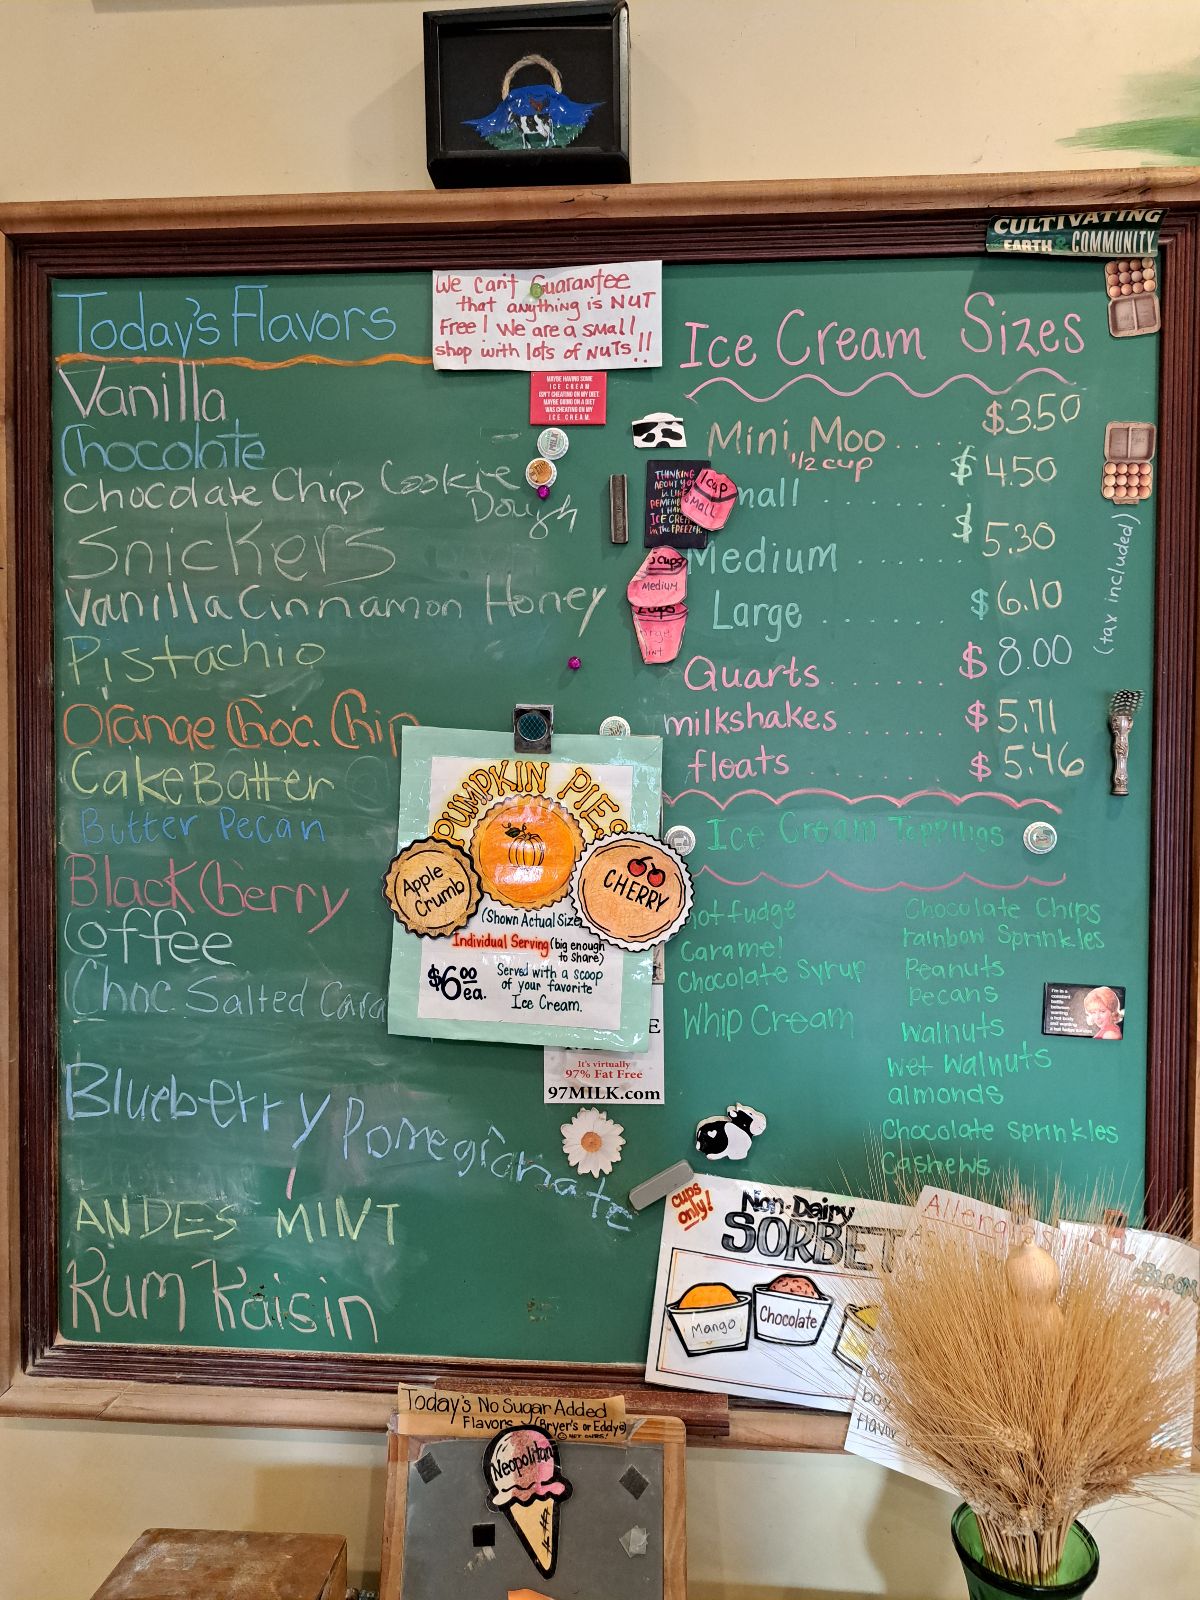 CULTIVATING
EARTH & COMMUNITY
We can't Guarantee
that anything is NUT
Free! We are a small
shop with lots of NUTs!!
MAYBE HAVING SOME
ICE CREAM
ISN'T CHEATING ON MY DIET.
MAYBE GOING ON A DIET
WAS CHEATING ON MY
ICE CREAM.
Today's Flavors
Vanilla
Chocolate
Chocolate Chip Cookie
Dough
Snickers
Vanilla Cinnamon Honey
Pistachio
Orange Choc. Chip
Cake Batter
Butter Pecan
Black Cherry
Coffee
Choc Salted Cara
Blueberry Pomegranate
ANDES MINT
Rum Raisin
PUMPKIN PIES
Apple
Crumb
CHERRY
(Shown Actual Size
Individual Serving (big enough
to share)
$6.00 ea.
Served with a scoop
of your favorite
Ice Cream.
It's virtually
97% Fat Free
97MILK.com
Ice Cream Sizes
Mini Moo .... $3.50
1/2 cup
mall ...... $4.50
Medium ...... $5.30
Large ....... $6.10
Quarts ....... $8.00
milkshakes ...... $5.71
floats ....... $5.46
(tax included)
THINKING
ABOUT YOU
IS LIKE
REMEMBE
I HAV
ICE CREA
in the FREEZER.
1 cup
small
cups
Medium
Ice Cream Toppings
hot fudge
Caramel
Chocolate Syrup
Whip Cream
Chocolate Chips
rainbow Sprinkles
Peanuts
pecans
walnuts
wet walnuts
almonds
Chocolate sprinkles
Cashews
I'm in a
constant
battle
between
wanting
a hot body
and wanting
a hot fudge sundae
cups
only!
Non-Dairy
SORBET
Mango
Chocolate
Allergies
flavor
Today's No Sugar Added
Flavors (Bryer's or Eddy's)
NOT OURS!
Neopolitan